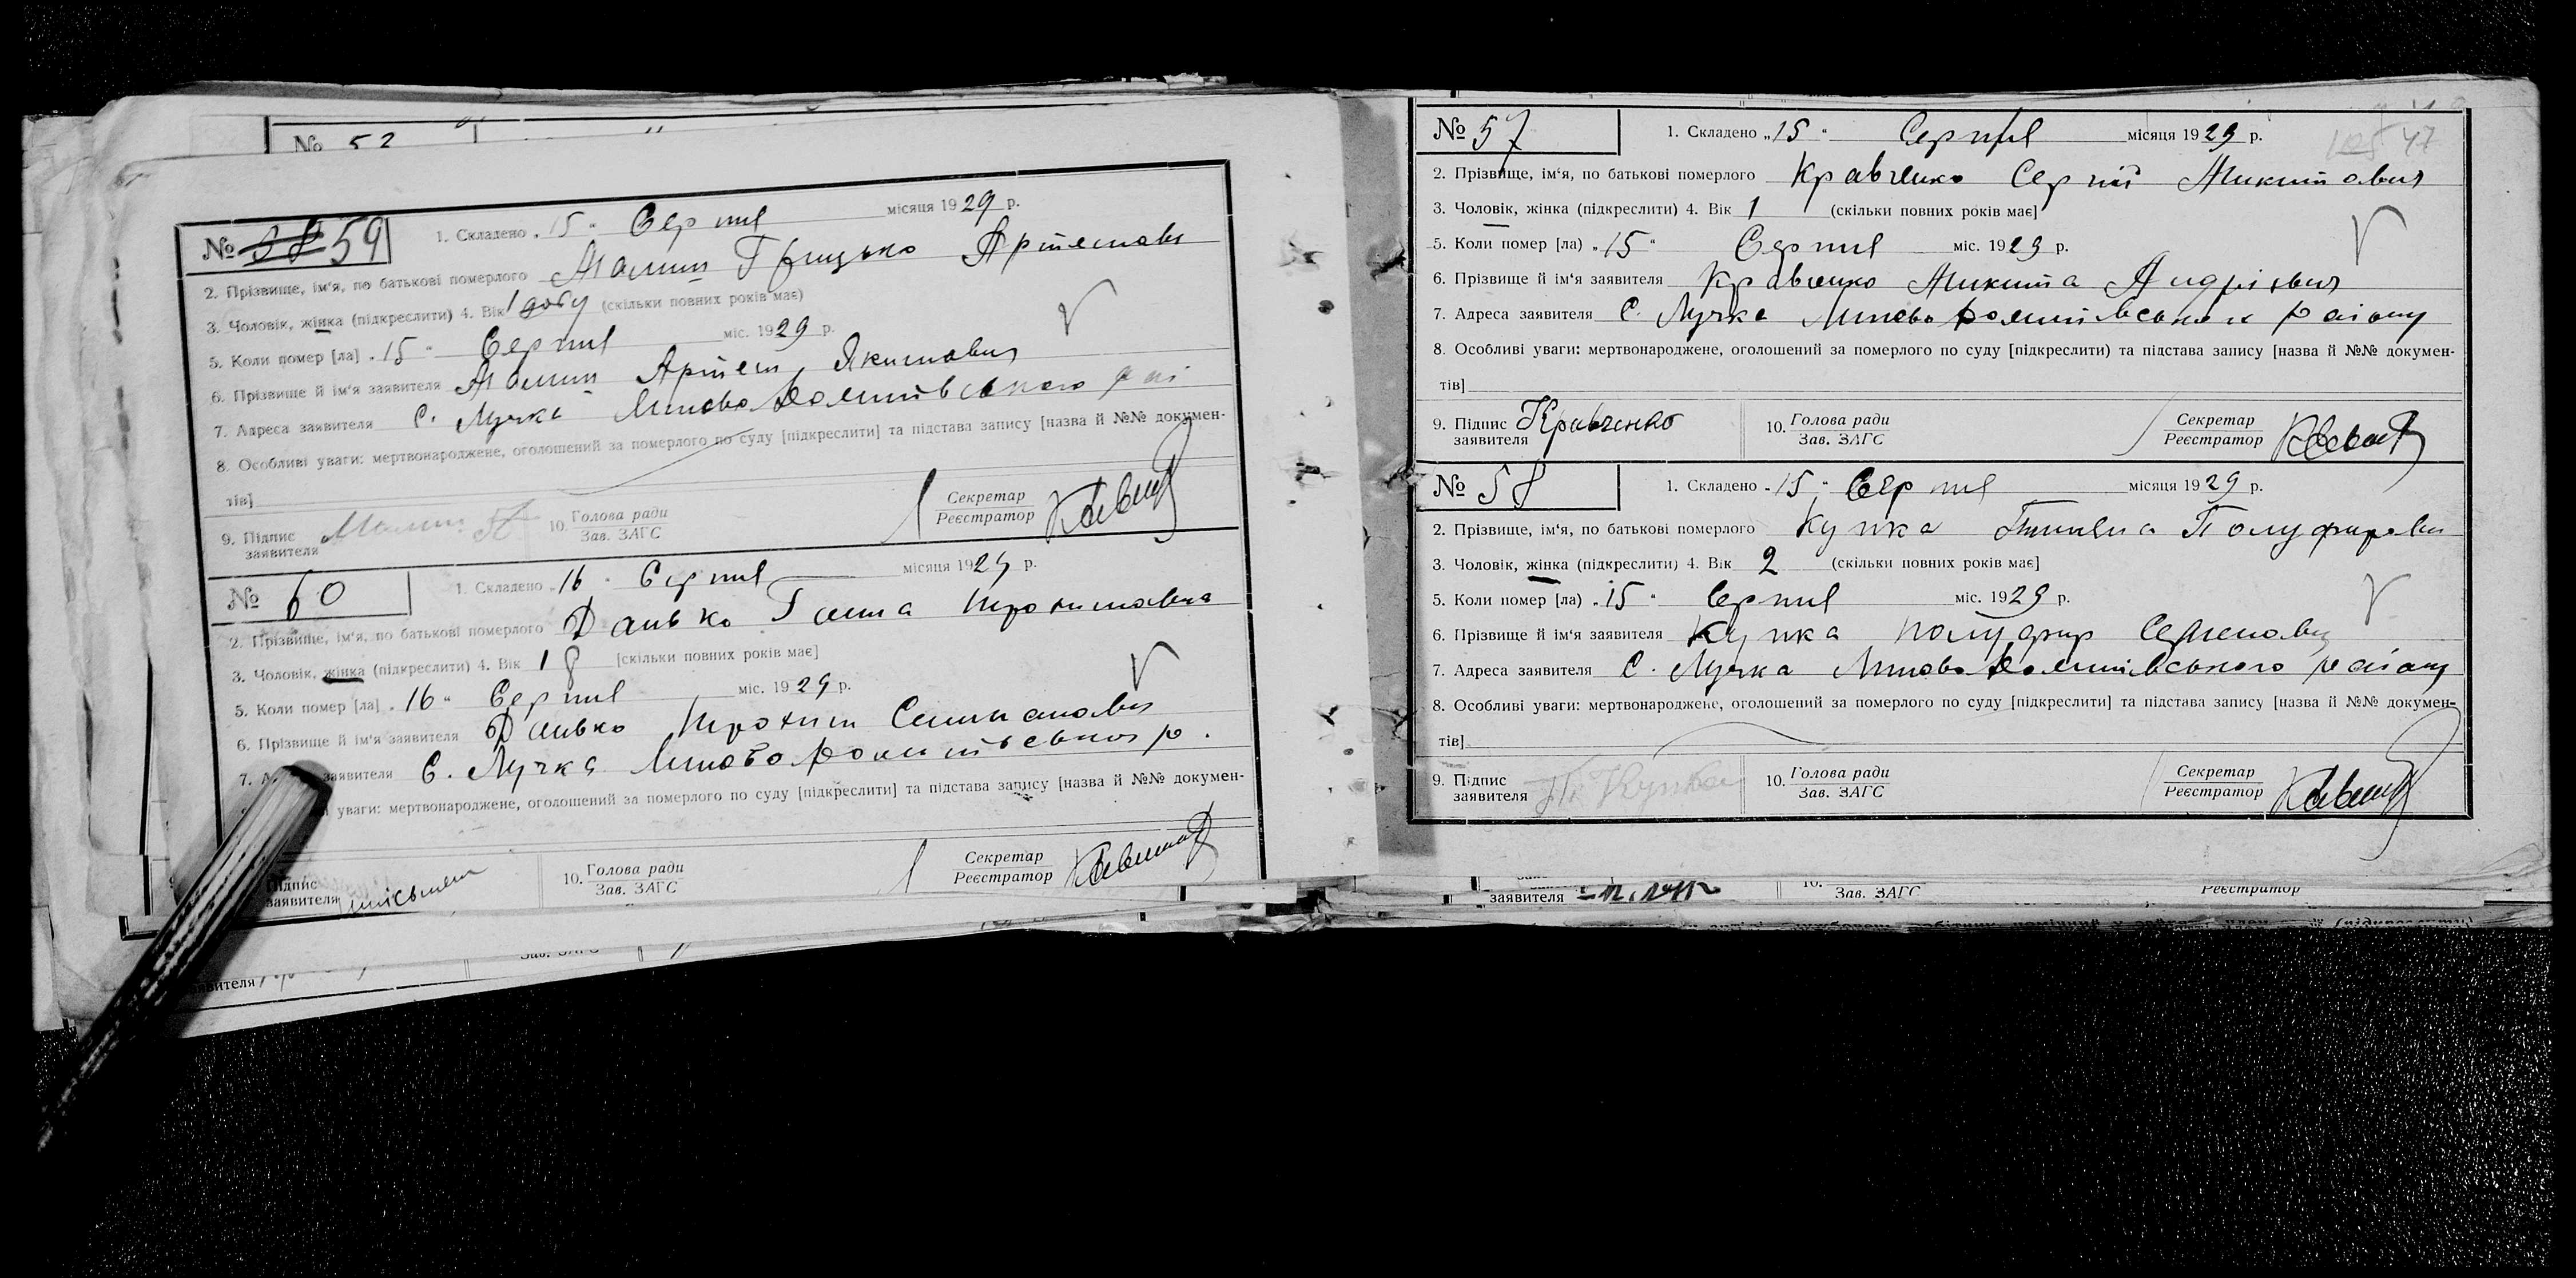 № 52
№ 59
1. Складено „15“ Серпня місяця 1929 р.
2. Прізвище, ім‘я, по батькові померлого Малиш Грицько Артемови
3. Чоловік, жінка (підкреслити) 4. Вік 1 добу (скільки повних років має)
5. Коли помер [ла] „15“ Серпня міс. 1929 р.
6. Прізвище й ім‘я заявителя Малиш Артем Якимович
7. Адреса заявителя С. Лучка Липово Долинівського рай
8. Особливі уваги: мертвонароджене, оголошений за померлого по суду [підкреслити] та підстава запису [назва й №№ докумен-
тів]
9. Підпис заявителя Малиш 10. Голова ради Зав. ЗАГС Секретар Реєстратор
№ 60
1. Складено „16“ Серпня місяця 1929 р.
2. Прізвище, ім‘я, по батькові померлого Данько Ганна Трохимовна
3. Чоловік, жінка (підкреслити) 4. Вік 18 [скільки повних років має]
5. Коли помер [ла] „16“ Серпня міс. 1929 р.
6. Прізвище й ім‘я заявителя Данько Трохим Степанович
7. А заявителя С. Лучка Липово Долинівського р.
уваги: мертвонароджене, оголошений за померлого по суду [підкреслити] та підстава запису [назва й №№ докумен-
Підпис заявителя 10. Голова ради Зав. ЗАГС Секретар Реєстратор
заявителя Зав. ЗАГС
№ 57 1. Складено „15“ Серпня місяця 1929 р. 47
2. Прізвище, ім‘я, по батькові померлого Кравченко Сергій Микитович
3. Чоловік, жінка (підкреслити) 4. Вік 1 (скільки повних років має]
5. Коли помер [ла) „15“ Серпня міс. 1929 р.
6. Прізвище й ім‘я заявителя Кравченко Микита Андрієвич
7. Адреса заявителя С. Лучка Липово Долинівського району
8. Особливі уваги: мертвонароджене, оголошений за померлого по суду [підкреслити) та підстава запису [назва й №№ докумен-
тів]
9. Підпис заявителя Кравченко 10. Голова ради Зав. ЗАГС Секретар Реєстратор
№ 58 1. Складено „15“ Серпня місяця 1929 р.
2. Прізвище, ім‘я, по батькові померлого Купка
3. Чоловік, жінка (підкреслити) 4. Вік 2 (скільки повних років має]
5. Коли помер [ла) „15“ Серпня міс. 1929 р.
6. Прізвище й ім‘я заявителя Купка Полуфир Семенович
7. Адреса заявителя С. Лучка Липово Долинівського району
8. Особливі уваги: мертвонароджене, оголошений за померлого по суду [підкреслити] та підстава запису [назва й №№ докумен-
тів]
9. Підпис заявителя Купка 10. Голова ради Зав. ЗАГС Секретар Реєстратор
заявителя 10. Зав. ЗАГС Реєстратор